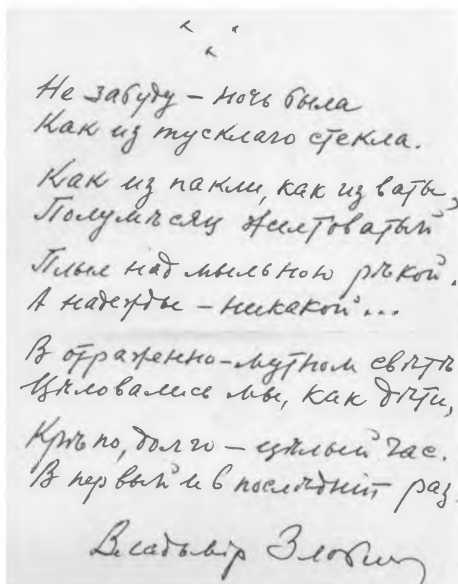 Не забуду – ночь была
Как из тусклаго стекла.
Как из пакли, как из ваты,
Полумѣсяц желтоватый
Плыл над мыльною рѣкой.
А надежды – никакой...
В отраженно-мутном свѣтѣ
Цѣловались мы, как дѣти,
Крѣпко, долго – цѣлый час.
В первый и в послѣдній раз.
Владимір Злобин